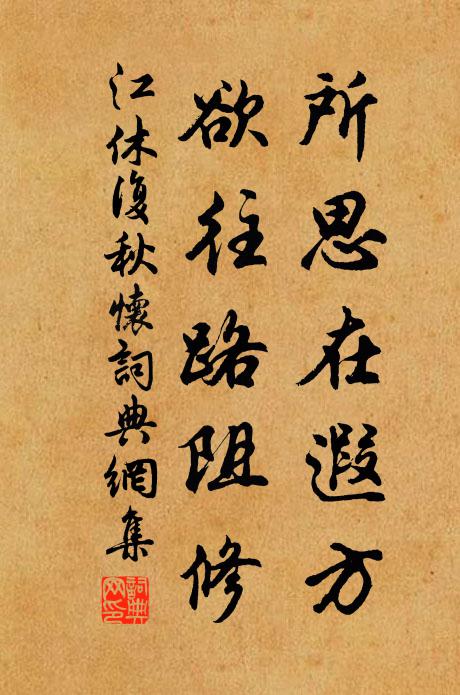 所思在遐方
欲往路阻修
江休復秋懷詞典網集
詞典網印